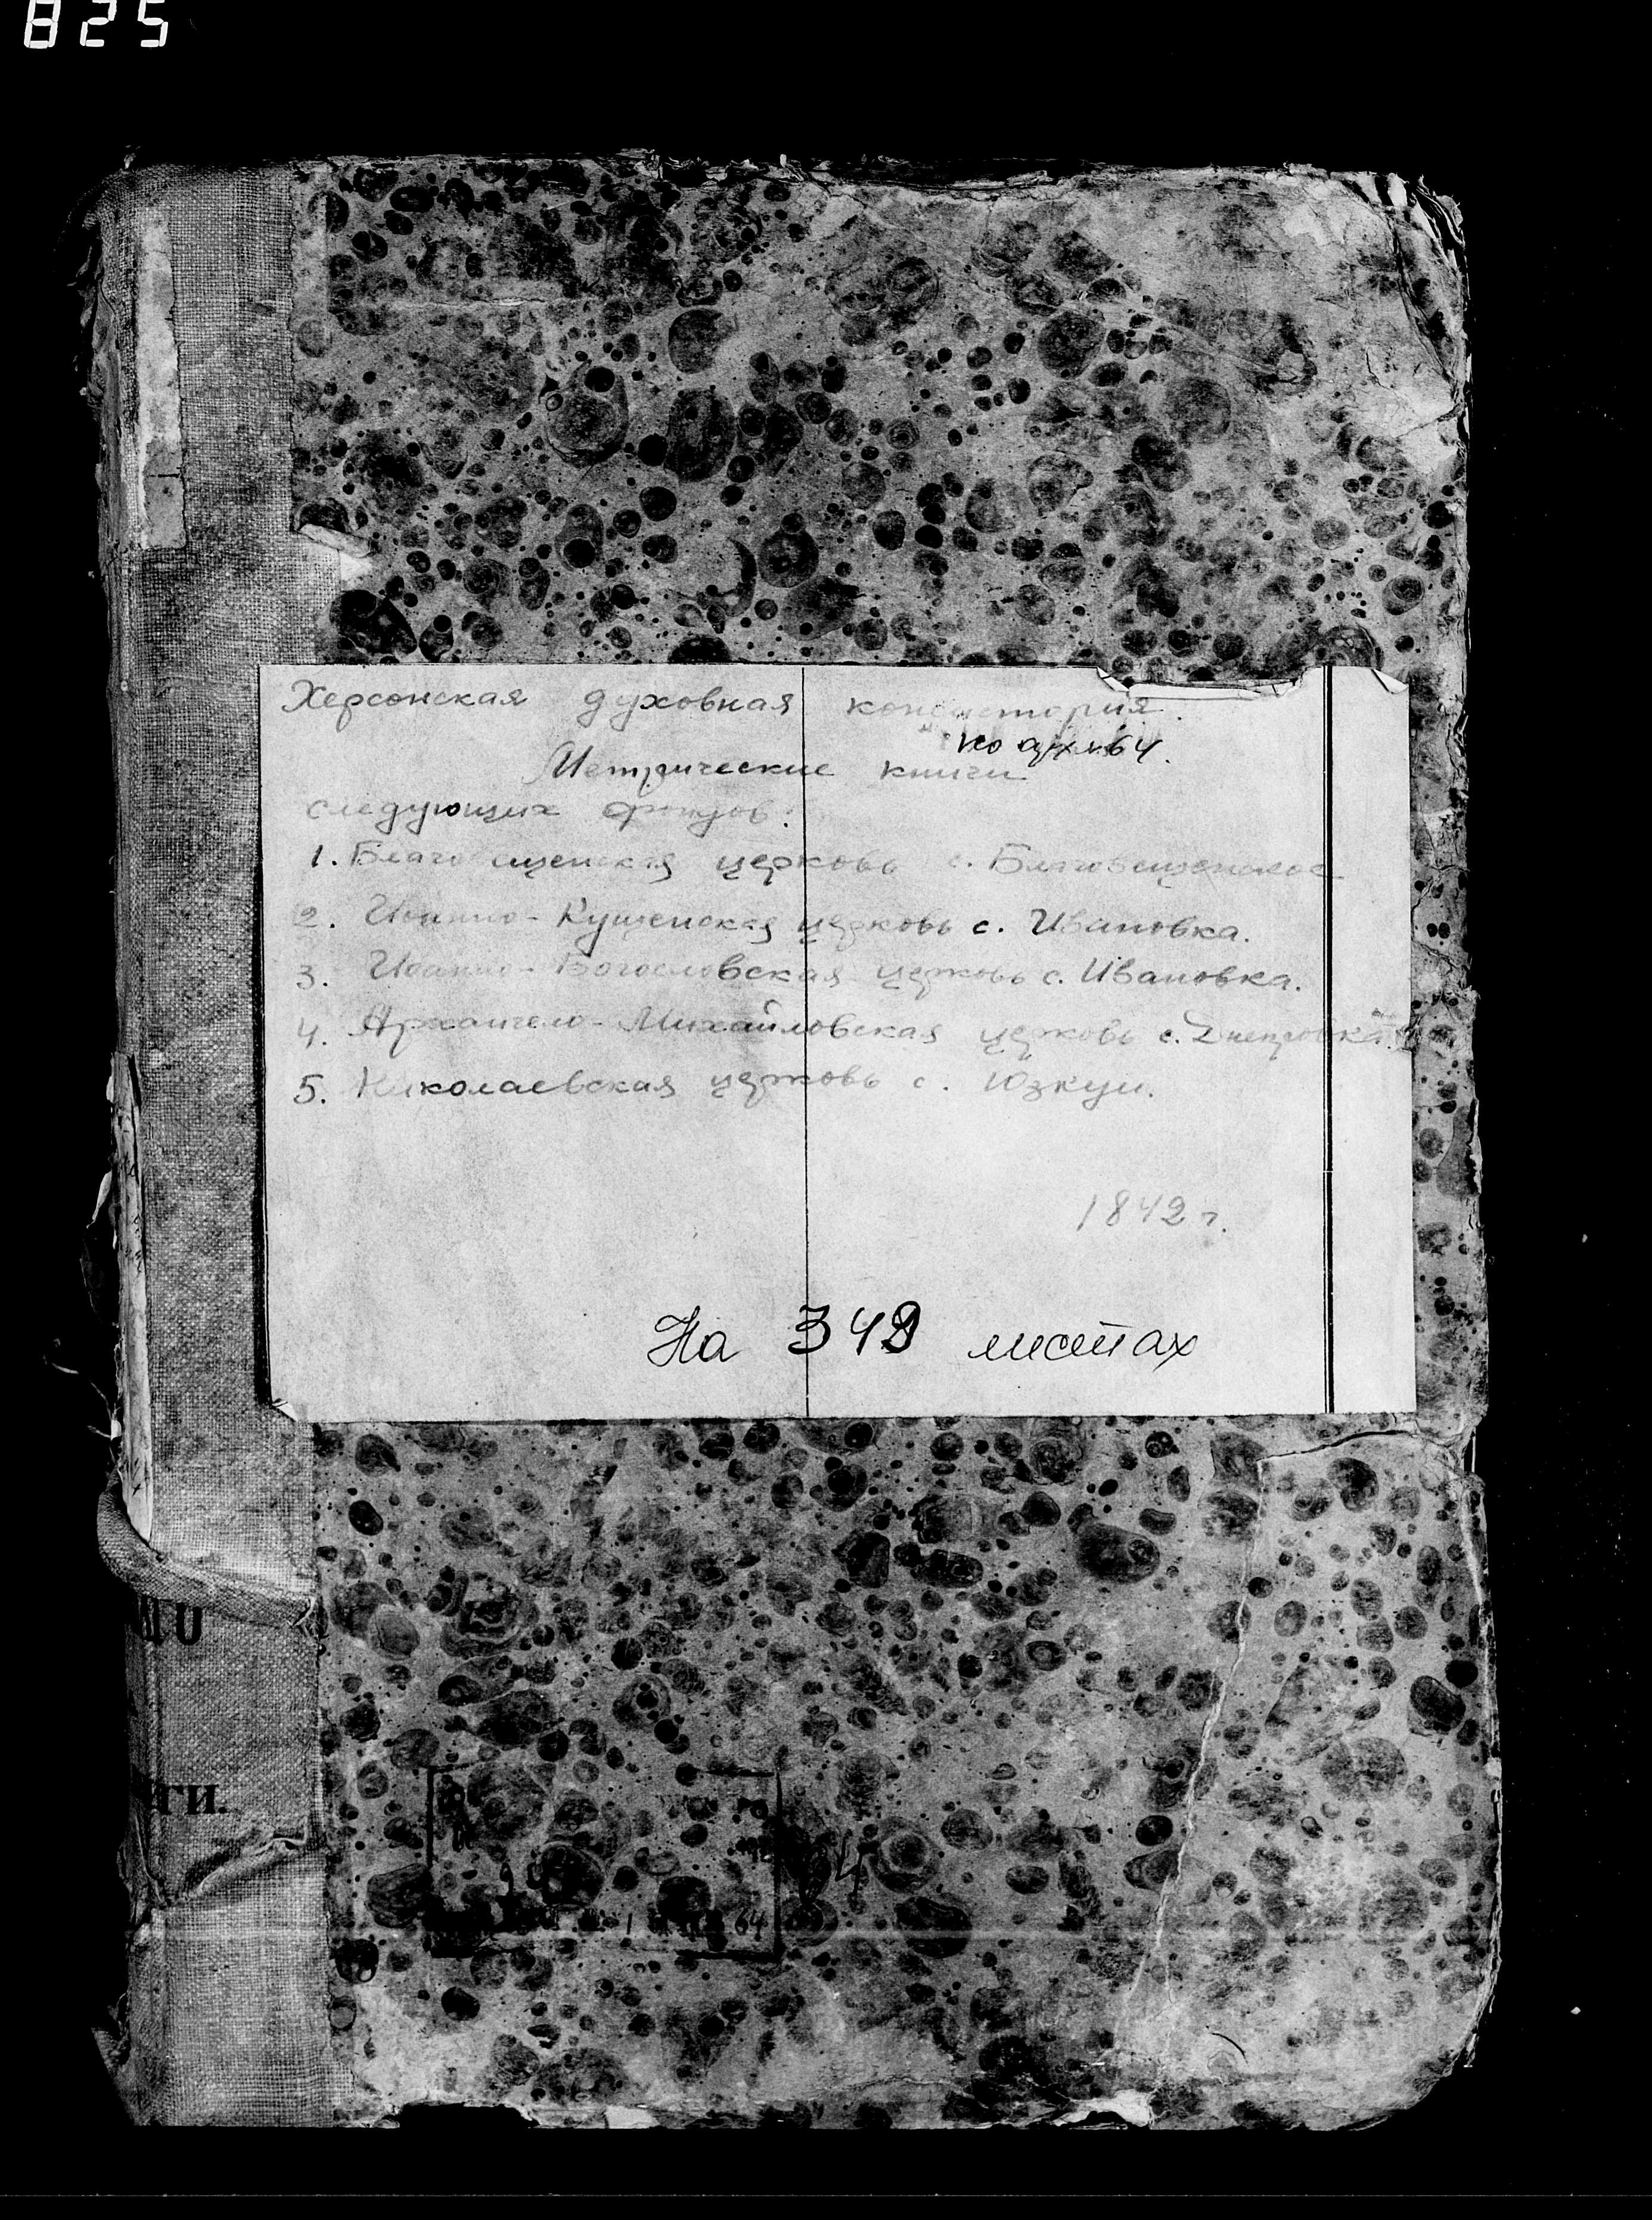 825
Херсонская духовная консистория.
по арх. 64.
Метрические книги
следующих фондов:
1. Благовещенская церковь с. Благовещенское
2. Иоанно-Кущенская церковь с. Ивановка.
3. Иоанно-Богословская церковь с. Ивановка.
4. Архангело-Михайловская церковь с. Днепровка.
5. Николаевская церковь с. Юзкуи.
1842 г.
На 349 листах
ги.
64